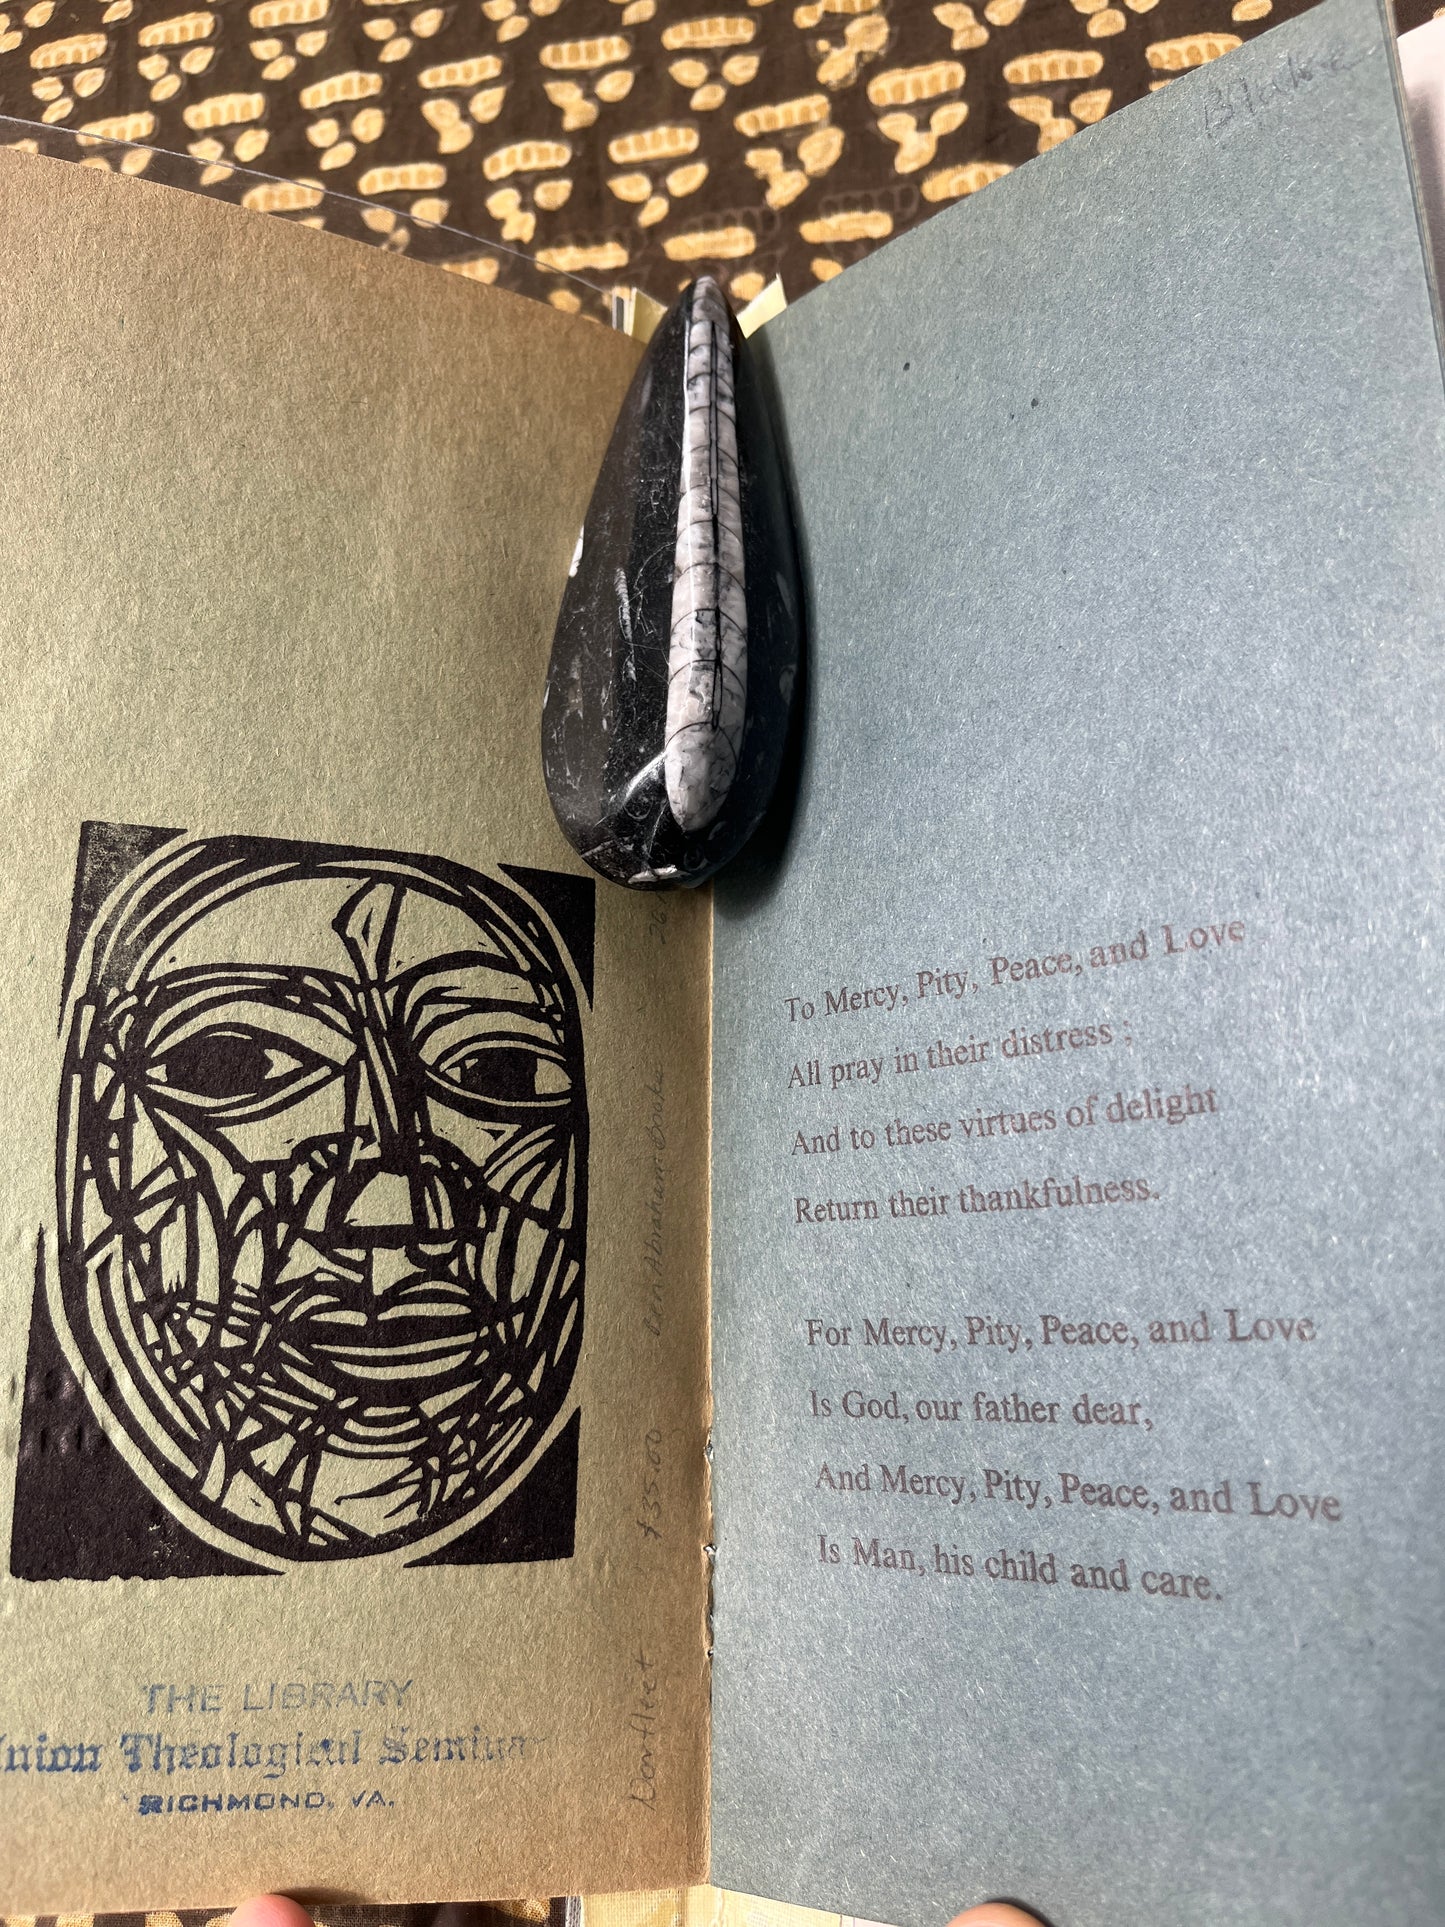 THE LIBRARY
Union Theological Seminar
RICHMOND, VA.
Norfleet $35.00 Bern Abraham Books 26
Blake
To Mercy, Pity, Peace, and Love
All pray in their distress ;
And to these virtues of delight
Return their thankfulness.
For Mercy, Pity, Peace, and Love
Is God, our father dear,
And Mercy, Pity, Peace, and Love
Is Man, his child and care.